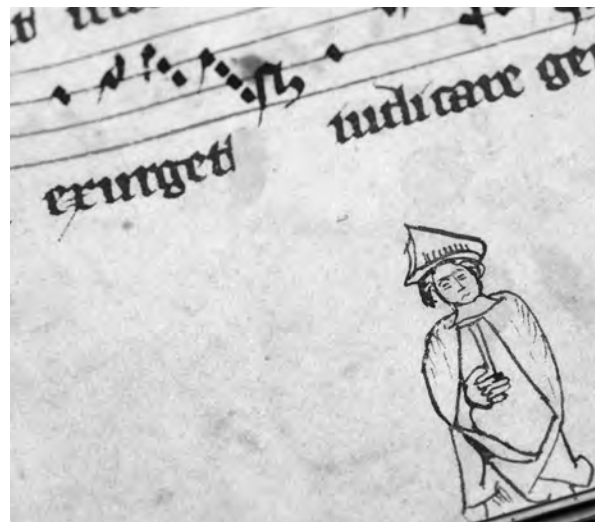 exurget iudicare ge